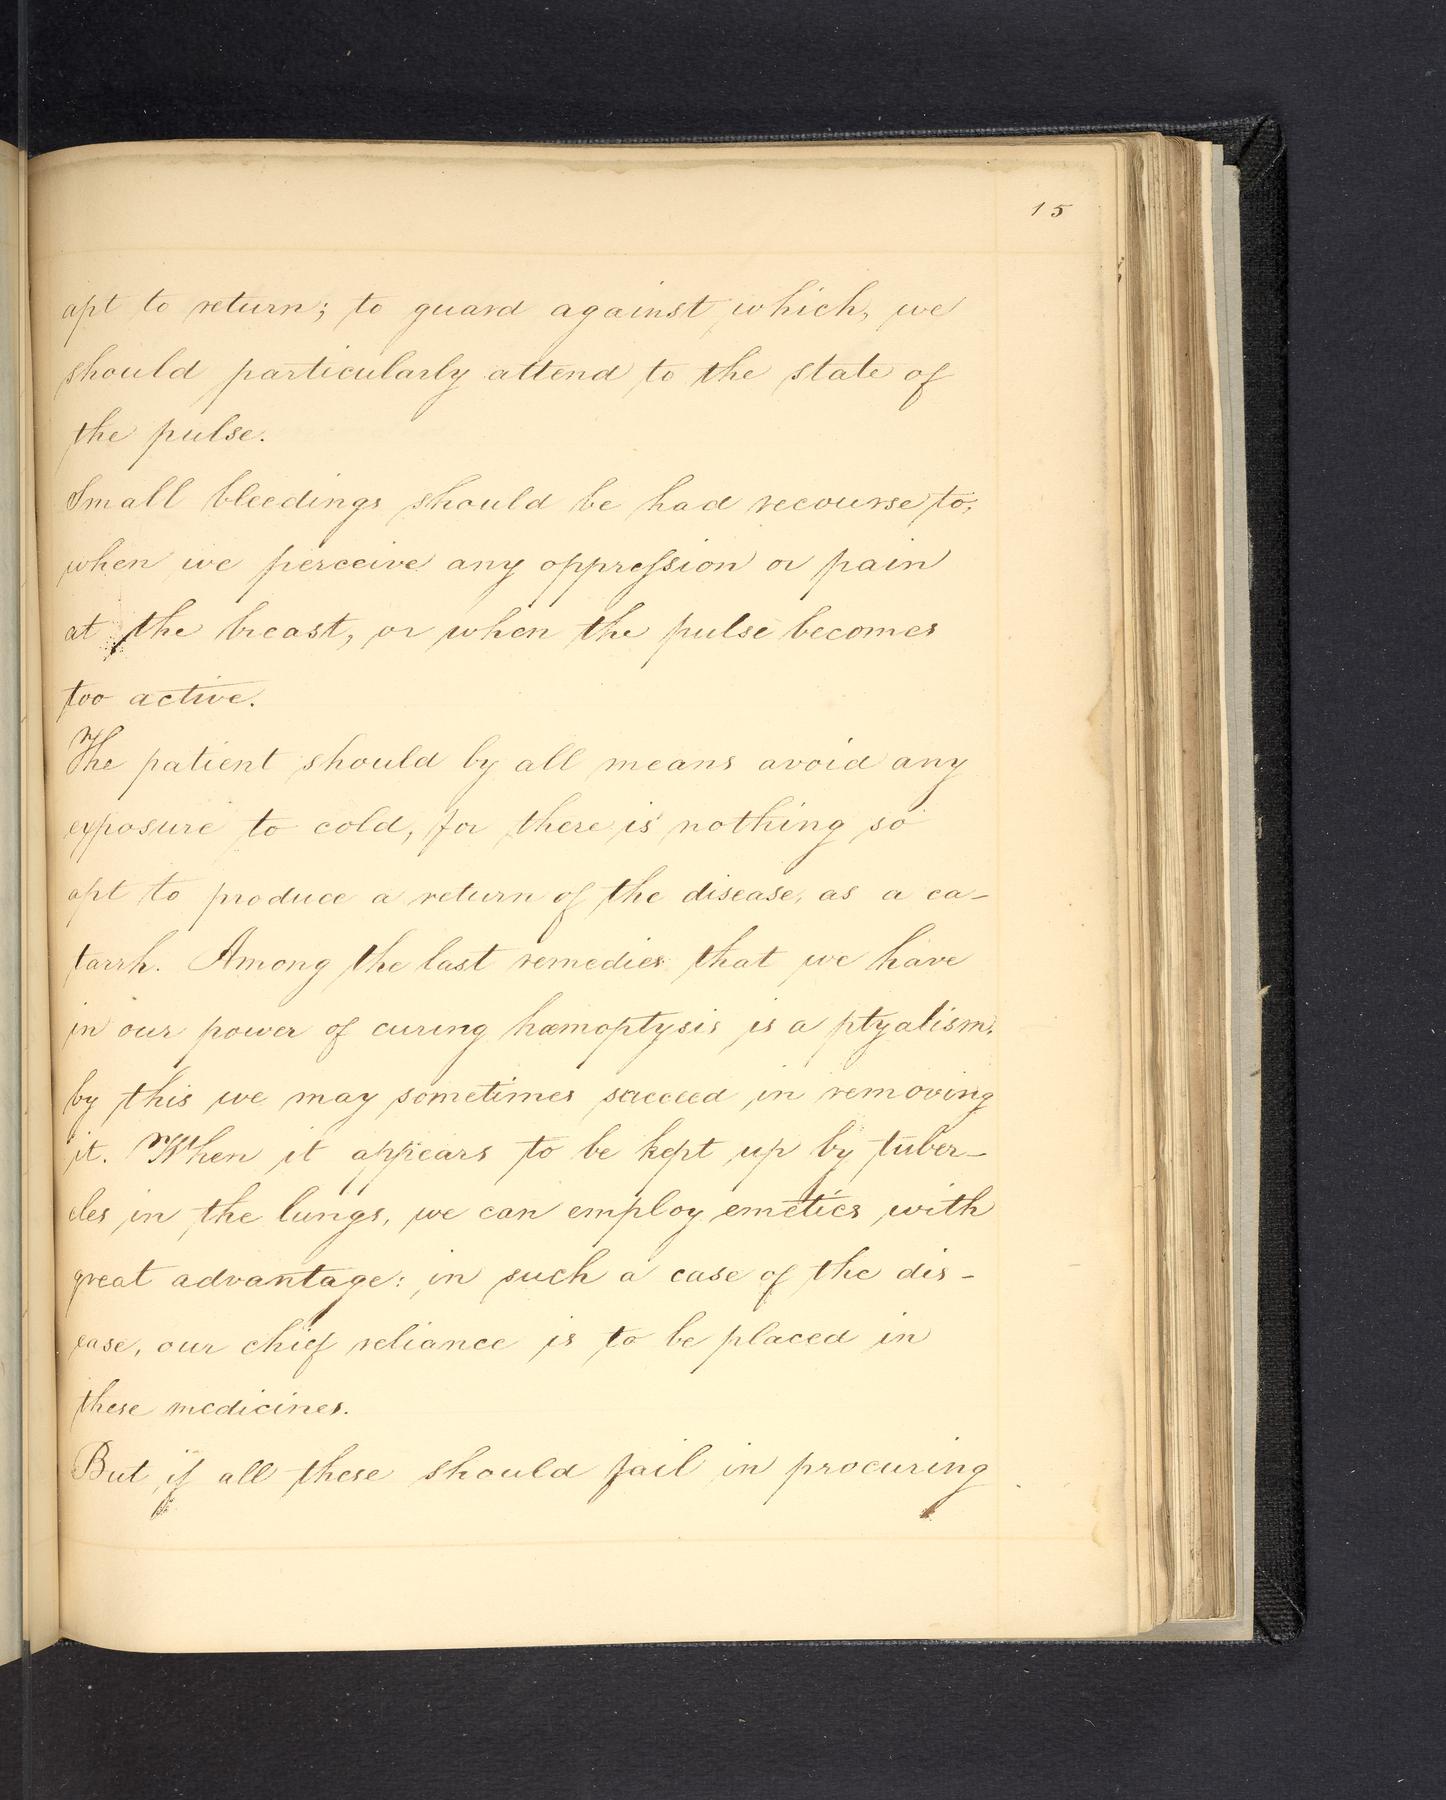 15
apt to return; to guard against which, we
should particularly attend to the state of
the pulse.
Small bleedings should be had recourse to,
when we perceive any oppreſsion or pain
at the breast, or when the pulse becomes
too active.
The patient should by all means avoid any
exposure to cold, for there is nothing so
apt to produce a return of the disease, as a ca-
tarrh. Among the last remedies that we have
in our power of curing hæmoptysis is a ptyalism.
by this we may sometimes succeed in removing
it. When it appears to be kept up by tuber-
cles in the lungs, we can employ emetics with
great advantage: in such a case of the dis-
ease, our chief reliance is to be placed in
these medicines.
But if all these should fail in procuring